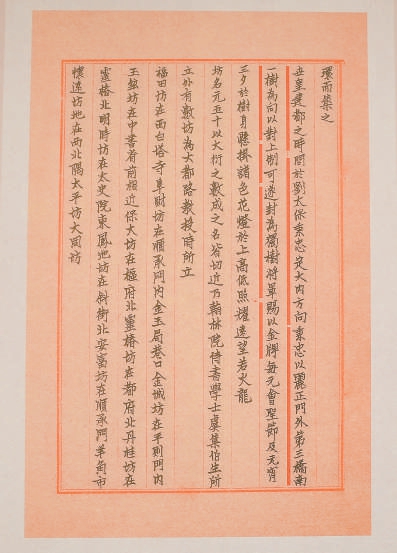 環而築之
世皇建都之時問於劉太保秉忠定大內方向秉忠以麗正門外第三橋南
一樹為向以對上制可遂封為獨樹將軍賜以金牌每元會聖節及元宵
三夕於樹身懸掛諸色花燈於上高低照耀遠望若火龍
坊名元五十以大衍之數成之名皆切近乃翰林院侍書學士虞集伯生所
立外有數坊為大都路教授時所立
福田坊在西白塔寺阜財坊在順承門內金玉局巷口金城坊在平則門內
玉鉉坊在中書省前相近保大坊在樞府北靈椿坊在都府北丹桂坊在
靈椿北明時坊在太史院東鳳池坊在斜街北安富坊在順承門羊角市
懷遠坊地在西北隅太平坊大同坊